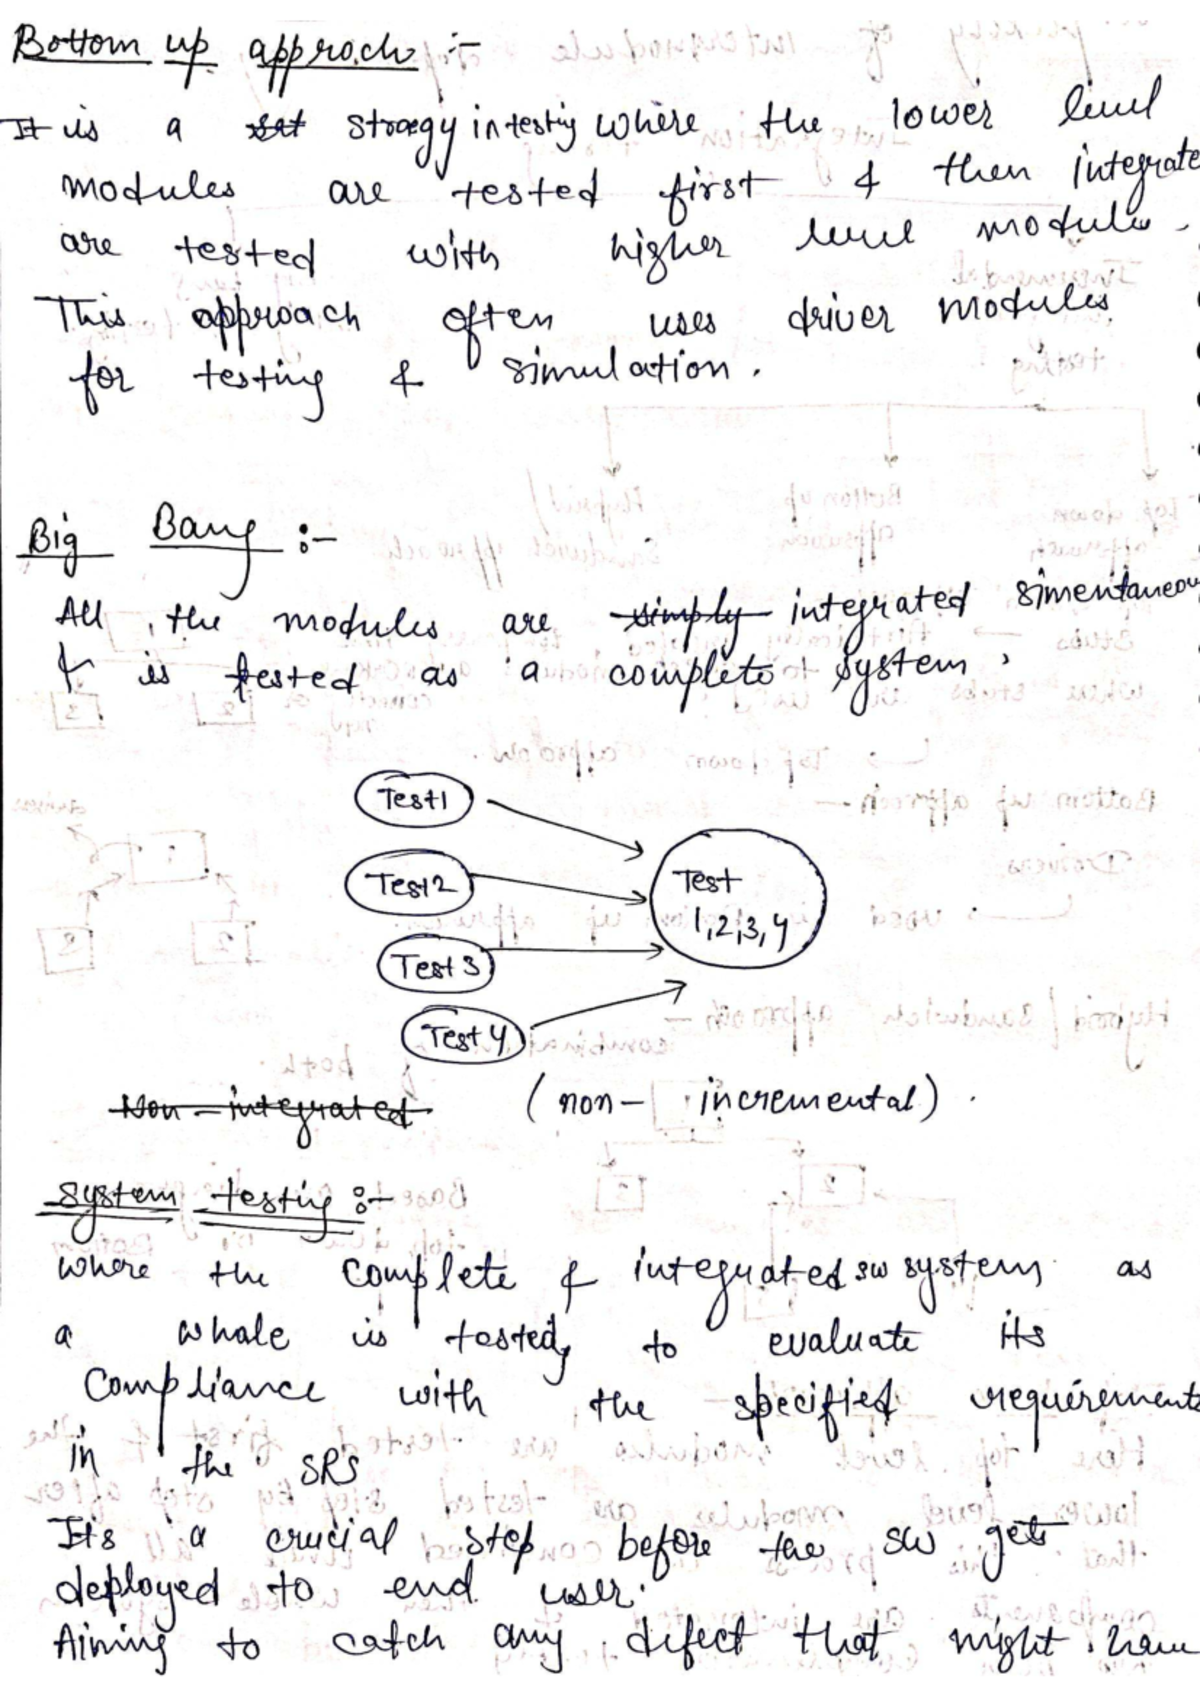 Bottom up approch :-
It is a stragy in testig where the lower level
modules are tested first & then integrate
are tested with higher level module.
This approach often uses driver modules
for testing & simulation.
Big Bang :-
All the modules are simply integrated simentaneou
& is tested as a complete system.
Test1
Test2
Test3
Test4
Test
1,2,3,4
Non-integrated (non-incremental).
System testing :-
where the complete & integrated sw system as
a whole is tested, to evaluate its
Compliance with the specified requirements
in the SRS
Its a crucial step before the sw gets
deployed to end user.
Aiming to catch any difect that might have